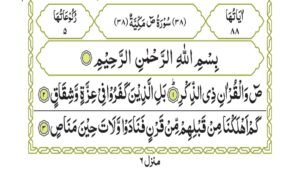 اٰيَاتُهَا ٨٨
(٣٨) سُوْرَةُ صٓ مَكِّيَّةٌ (٣٨)
رُكُوْعَاتُهَا ٥
بِسْمِ اللّٰهِ الرَّحْمٰنِ الرَّحِيْمِ
صٓ وَالْقُرْاٰنِ ذِی الذِّكْرِ ۝١ بَلِ الَّذِيْنَ كَفَرُوْا فِیْ عِزَّةٍ وَّشِقَاقٍ ۝٢
كَمْ اَهْلَكْنَا مِنْ قَبْلِهِمْ مِّنْ قَرْنٍ فَنَادَوْا وَّلَاتَ حِيْنَ مَنَاصٍ ۝٣
منزل ٦